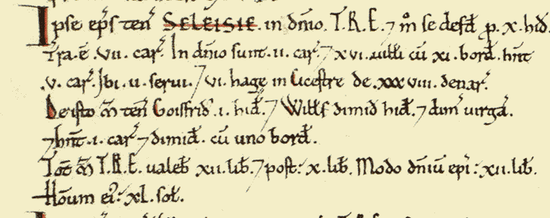 Ipse ep̃s ten̄ SELEISIE. in dn̄io. T.R.E. ⁊ m̊ se defd̄ ꝑ. x. hid.
Tra.ē.vii. car̄. In dn̄io sunt.ii. car̄. ⁊ xvi. uiłłi cū xi. bord. hn̄t
.v. car̄. Ibi.ii. serui. ⁊ vi. hagæ in Cicestre de. xxxviii. denar̄.
De isto m̃ ten̄ Goisfrid. i. hid̄. ⁊ Wiłłs dimid hid̄. ⁊ dim̄ uirgā.
⁊ hn̄t.i. car̄ ⁊ dimid. cū uno bord.
Tot̄ m̃ T.R.E. valeb̄ xii. lib̄. ⁊ post: x. lib̄. Modo dn̄iū ep̄i: xii. lib̄.
Hōum ei: xl. sol.